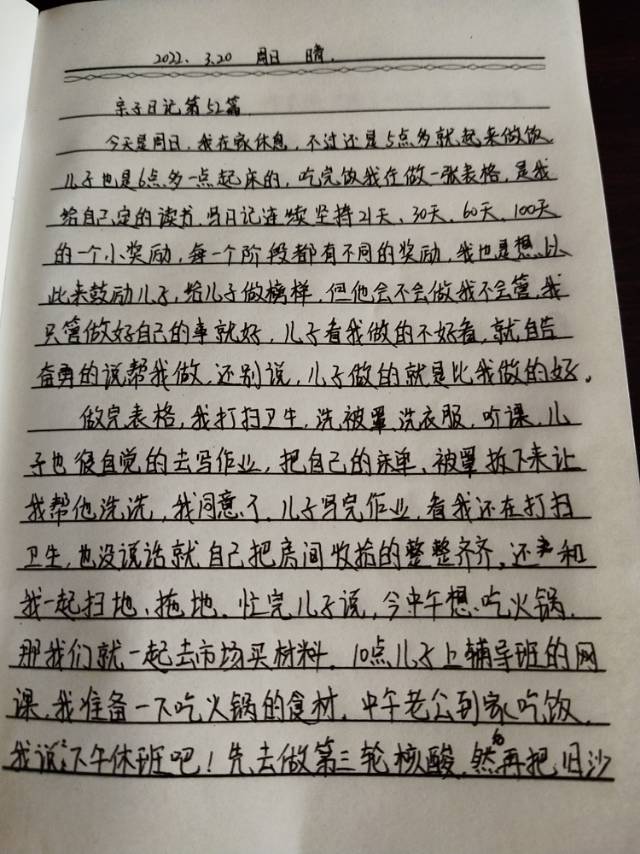 2022.3.20 周日 晴.
亲子日记第52篇
今天是周日,我在家休息,不过还是5点多就起来做饭
儿子也是6点多一点起床的,吃完饭我在做一张表格,是我
给自己定的读书、写日记连续坚持21天、30天、60天、100天
的一个小奖励,每一个阶段都有不同的奖励,我也是想以
此来鼓励儿子,给儿子做榜样,但他会不会做我不会管,我
只管做好自己的事就好,儿子看我做的不好看,就自告
奋勇的说帮我做,还别说,儿子做的就是比我做的好。
做完表格,我打扫卫生,洗被罩,洗衣服,听课,儿
子也很自觉的去写作业,把自己的床单、被罩拆下来让
我帮他洗洗,我同意了,儿子写完作业,看我还在打扫
卫生,也没说话就自己把房间收拾的整整齐齐,还和
我一起扫地、拖地,忙完儿子说,今中午想吃火锅,
那我们就一起去市场买材料,10点儿子上辅导班的网
课,我准备一下吃火锅的食材,中午老公到家吃饭,
我说:"下午休班吧!先去做第三轮核酸,然后再把旧沙